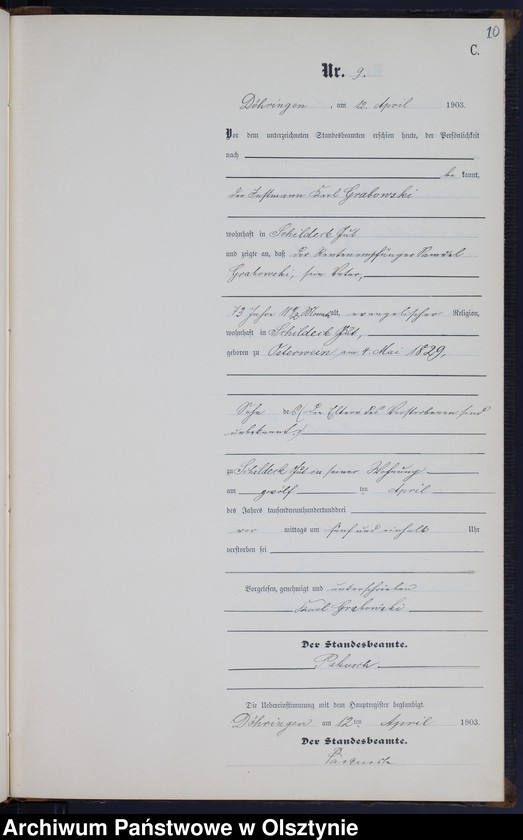 10
C.
Nr. 9.
Döhringen, am 12. April 1903.
Vor dem unterzeichneten Standesbeamten erschien heute, der Persönlichkeit
nach
be kannt,
der Instmann Karl Grabowski
wohnhaft in Schildeck Gut
und zeigte an, daß der Rentenempfänger Samuel
Grabowski, sein Vater,
73 Jahre 11 Monate alt, evangelischer Religion,
wohnhaft in Schildeck Gut,
geboren zu Osterwein am 4. Mai 1829,
Sohn des (die Eltern des Verstorbenen sind
unbekannt)
zu Schildeck Gut in seiner Wohnung
am zwölf ten April
des Jahres tausendneunhundertunddrei
vor mittags um fünf und einhalb Uhr
verstorben sei
Vorgelesen, genehmigt und unterschrieben
Karl Grabowski
Der Standesbeamte.
Die Uebereinstimmung mit dem Hauptregister beglaubigt.
Döhringen am 12ten April 1903.
Der Standesbeamte.
Archiwum Państwowe w Olsztynie